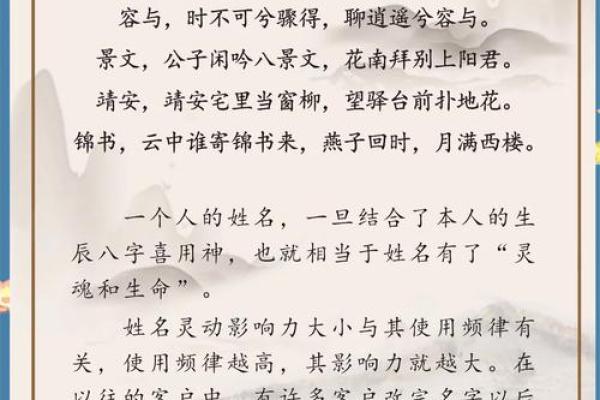 容与，时不可兮骤得，聊逍遥兮容与。
景文，公子闲吟八景文，花南拜别上阳君。
靖安，靖安宅里当窗柳，望驿台前扑地花。
锦书，云中谁寄锦书来，燕子回时，月满西楼。
一个人的姓名，一旦结合了本人的生
辰八字喜用神，也就相当于姓名有了“灵
魂和生命”。
姓名灵动影响力大小与其使用频律有
关，使用频律越高，其影响力就越大。在
以往的客户中，有许多客户改完名字以后